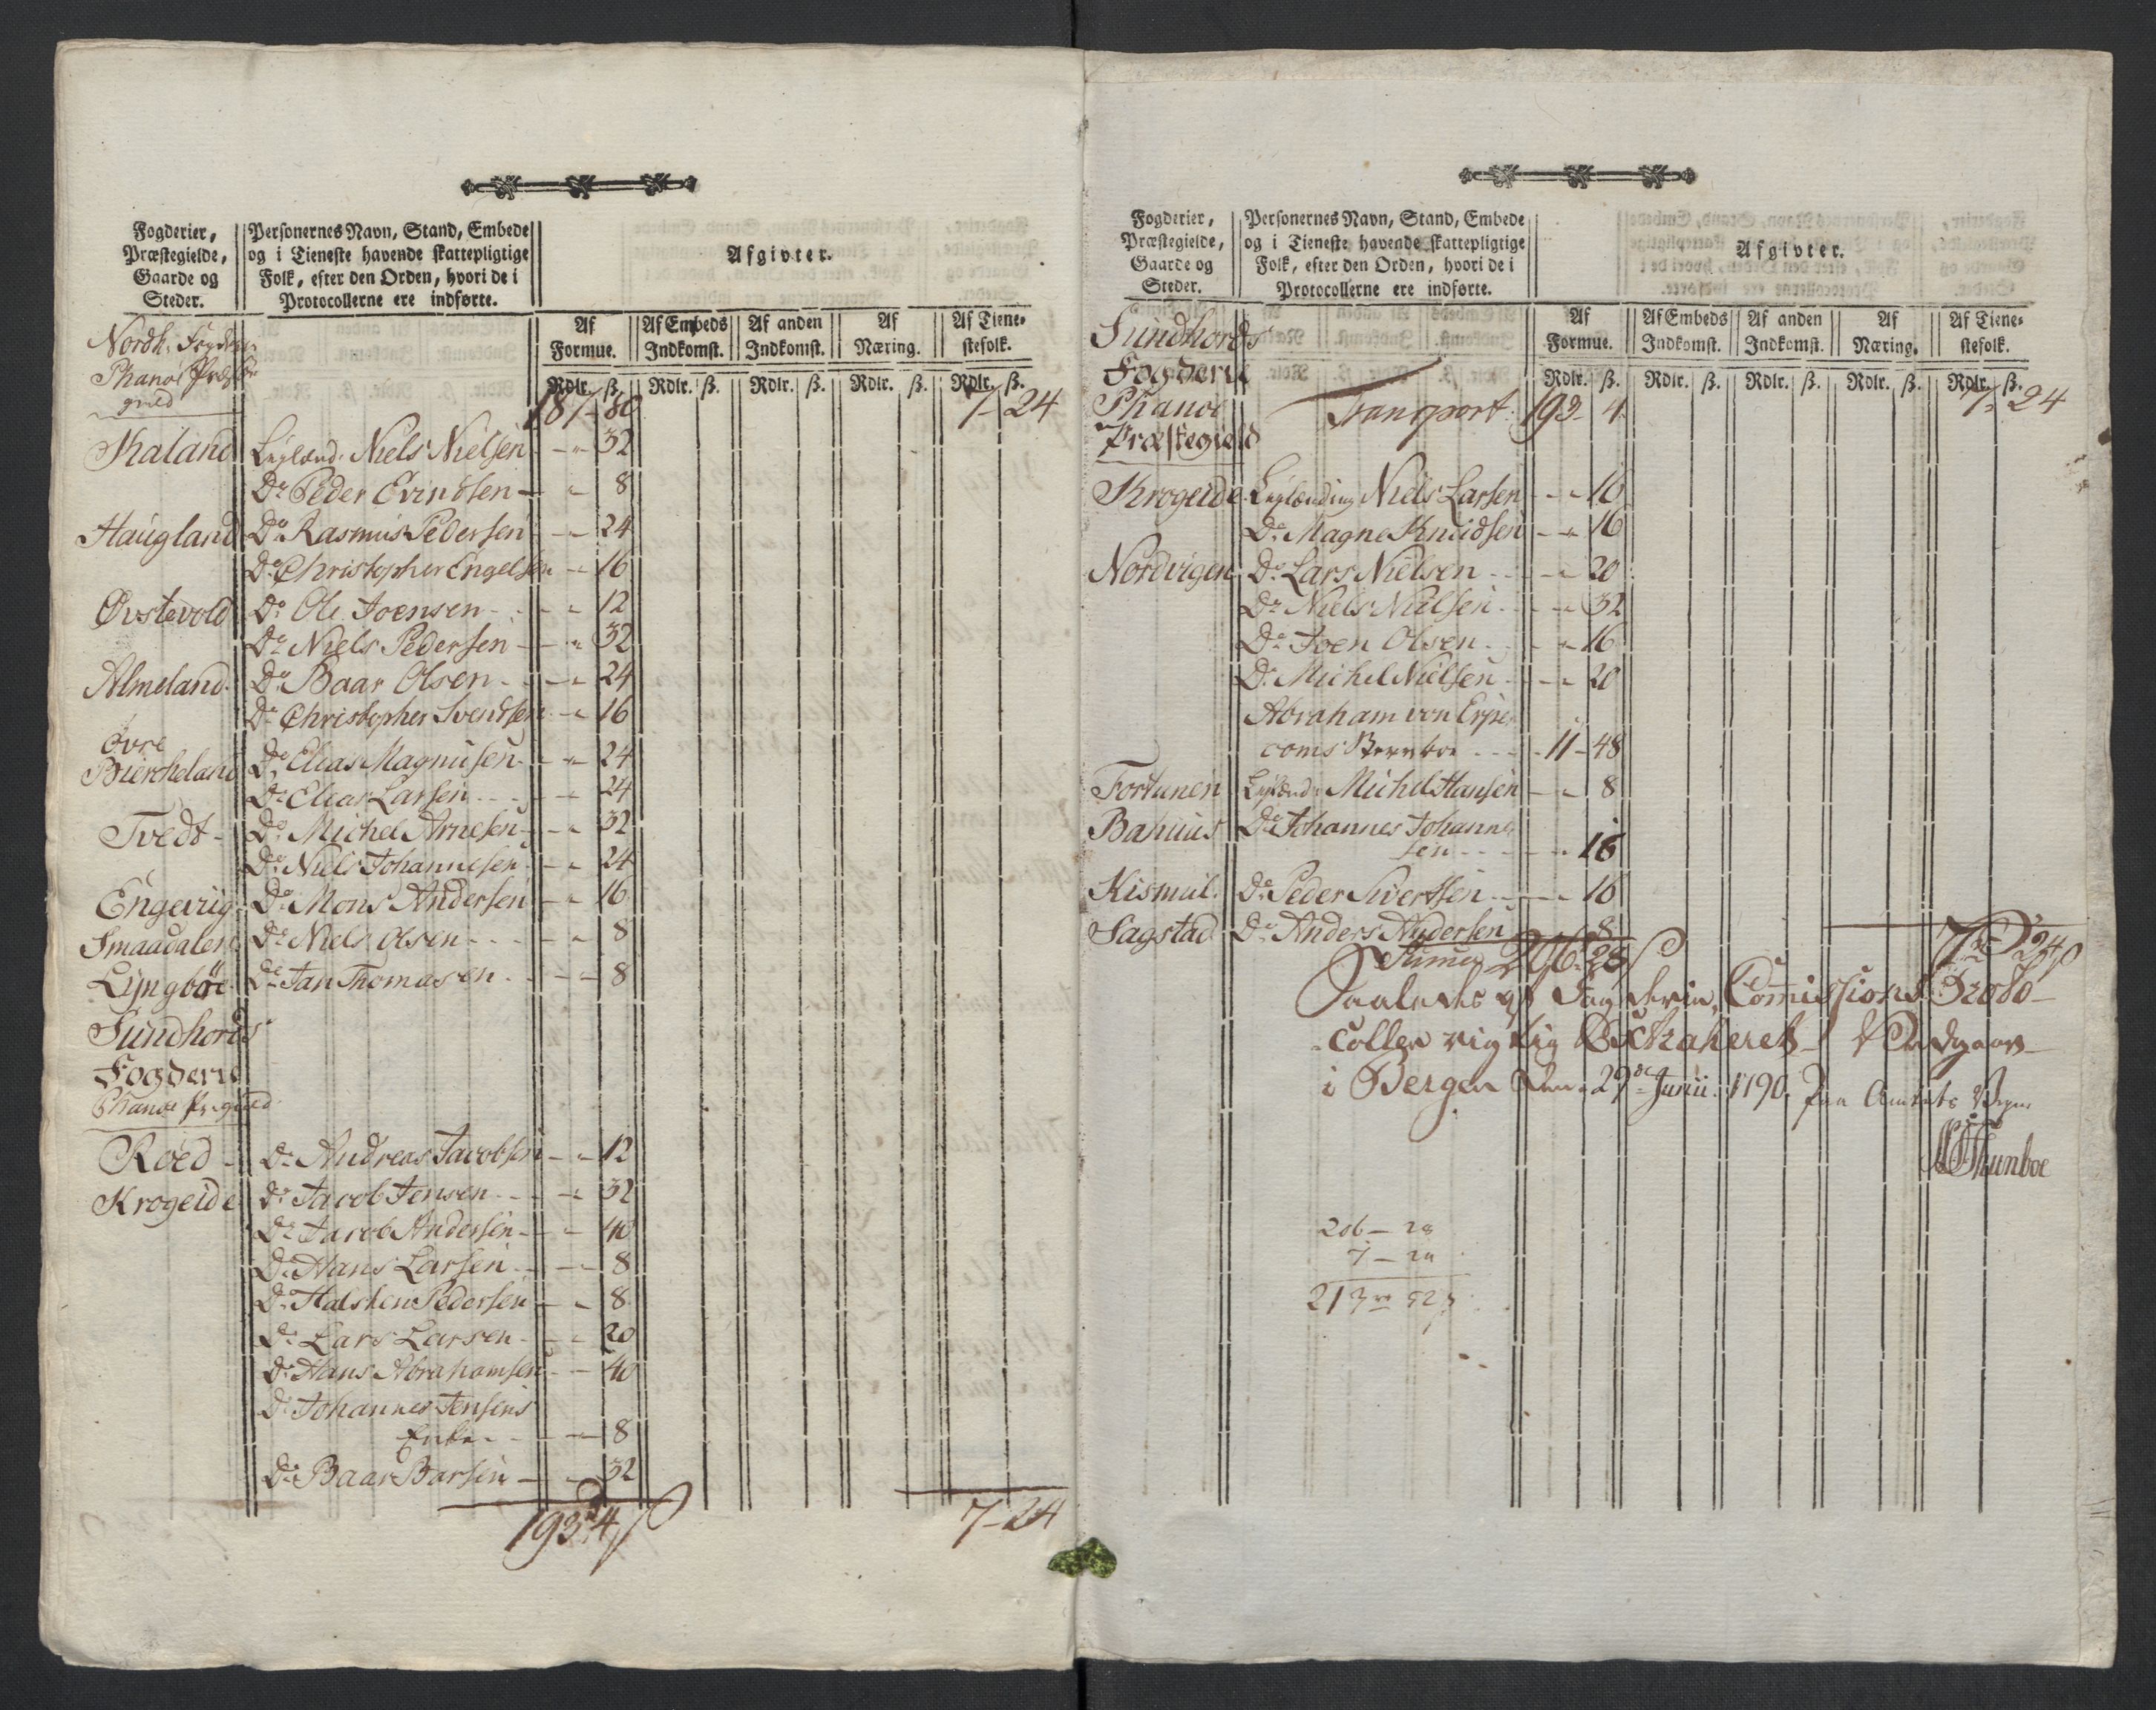 Fogderier,
Præstegielde,
Gaarde og
Steder.
Personernes Navn, Stand, Embede
og i Tieneste havende skattepligtige
Folk, efter den Orden, hvori de i
Protocollerne ere indførte.
Afgivter.
Af
Formue.
Af Embeds
Indkomst.
Af anden
Indkomst.
Af
Næring.
Af Tiene-
stefolk.
Rdlr. ß. Rdlr. ß. Rdlr. ß. Rdlr. ß. Rdlr. ß.
Nordh. Fogderie
Phanøe Præste
gield
187 - 80 7 - 24
Skaland Leylænd. Niels Nielsen - " - 32
Do Peder Evindsen - " 8
Haugland Do Rasmus Pedersen - " 24
Do Christopher Engelsen - " 16
Øvstevold Do Ole Joensen - " 12
Do Niels Pedersen - " 32
Almeland Do Baar Olsen - " 24
Do Christopher Svendsen - " 16
Øvre
Bircheland Do Elias Magnusen - " 24
Do Elias Larsen - " 24
Tvedt - Do Michel Arnesen - " 32
Do Niels Johannesen - " 24
Engevig Do Mons Andersen - " 16
Smaadalen Do Niels Olsen - " 8
Lyngbøe Do Jan Thomasen - " 8
Sundhords
Fogderie
Phanøe Pr. gield
Røed - Do Andreas Jacobsen - " 12
Krogeide Do Jacob Jensen - " 32
Do Jacob Andersen - " 40
Do Hans Larsen - " 8
Do Halsten Pedersen - " 8
Do Lars Larsen - " 20
Do Hans Abrahamsen - " 40
Do Johannes Jensens
Enke - " 8
Do Baar Barsen - " 32
193 4 ß 7 - 24
Fogderier,
Præstegielde,
Gaarde og
Steder.
Personernes Navn, Stand, Embede
og i Tieneste havende skattepligtige
Folk, efter den Orden, hvori de i
Protocollerne ere indførte.
Afgivter.
Af
Formue.
Af Embeds
Indkomst.
Af anden
Indkomst.
Af
Næring.
Af Tiene-
stefolk.
Rdlr. ß. Rdlr. ß. Rdlr. ß. Rdlr. ß. Rdlr. ß.
Sundhords
Fogderie
Phanøe Transport 193 - 4 7 - 24
Præstegield
Krogeide Leylænding Niels Larsen - " 16
Do Magne Knudsen - " 16
Nordvigen Do Lars Nielsen - " 20
Do Niels Nielsen - " 32
Do Joen Olsen - " 16
Do Michel Nielsen - " 20
Abraham von Erpe
coms - 11 - 48
Fortunen Leylænd. Michel Hansen - " 8
Bahuus Do Johannes Johanne
sen - " 16
Kismul. Do Peder Sivertsen - " 16
Sagstad Do Anders Andersen 8
Summa 206 - 28 ß 7 24 ß
Saaledes af Fogderiets Commissions Proto-
collen rigtig Extraheret
i Bergen den 29de Junii 1790. Paa Amtets Vegne
Thunboe
206 - 28
7 - 24
213 52 ß